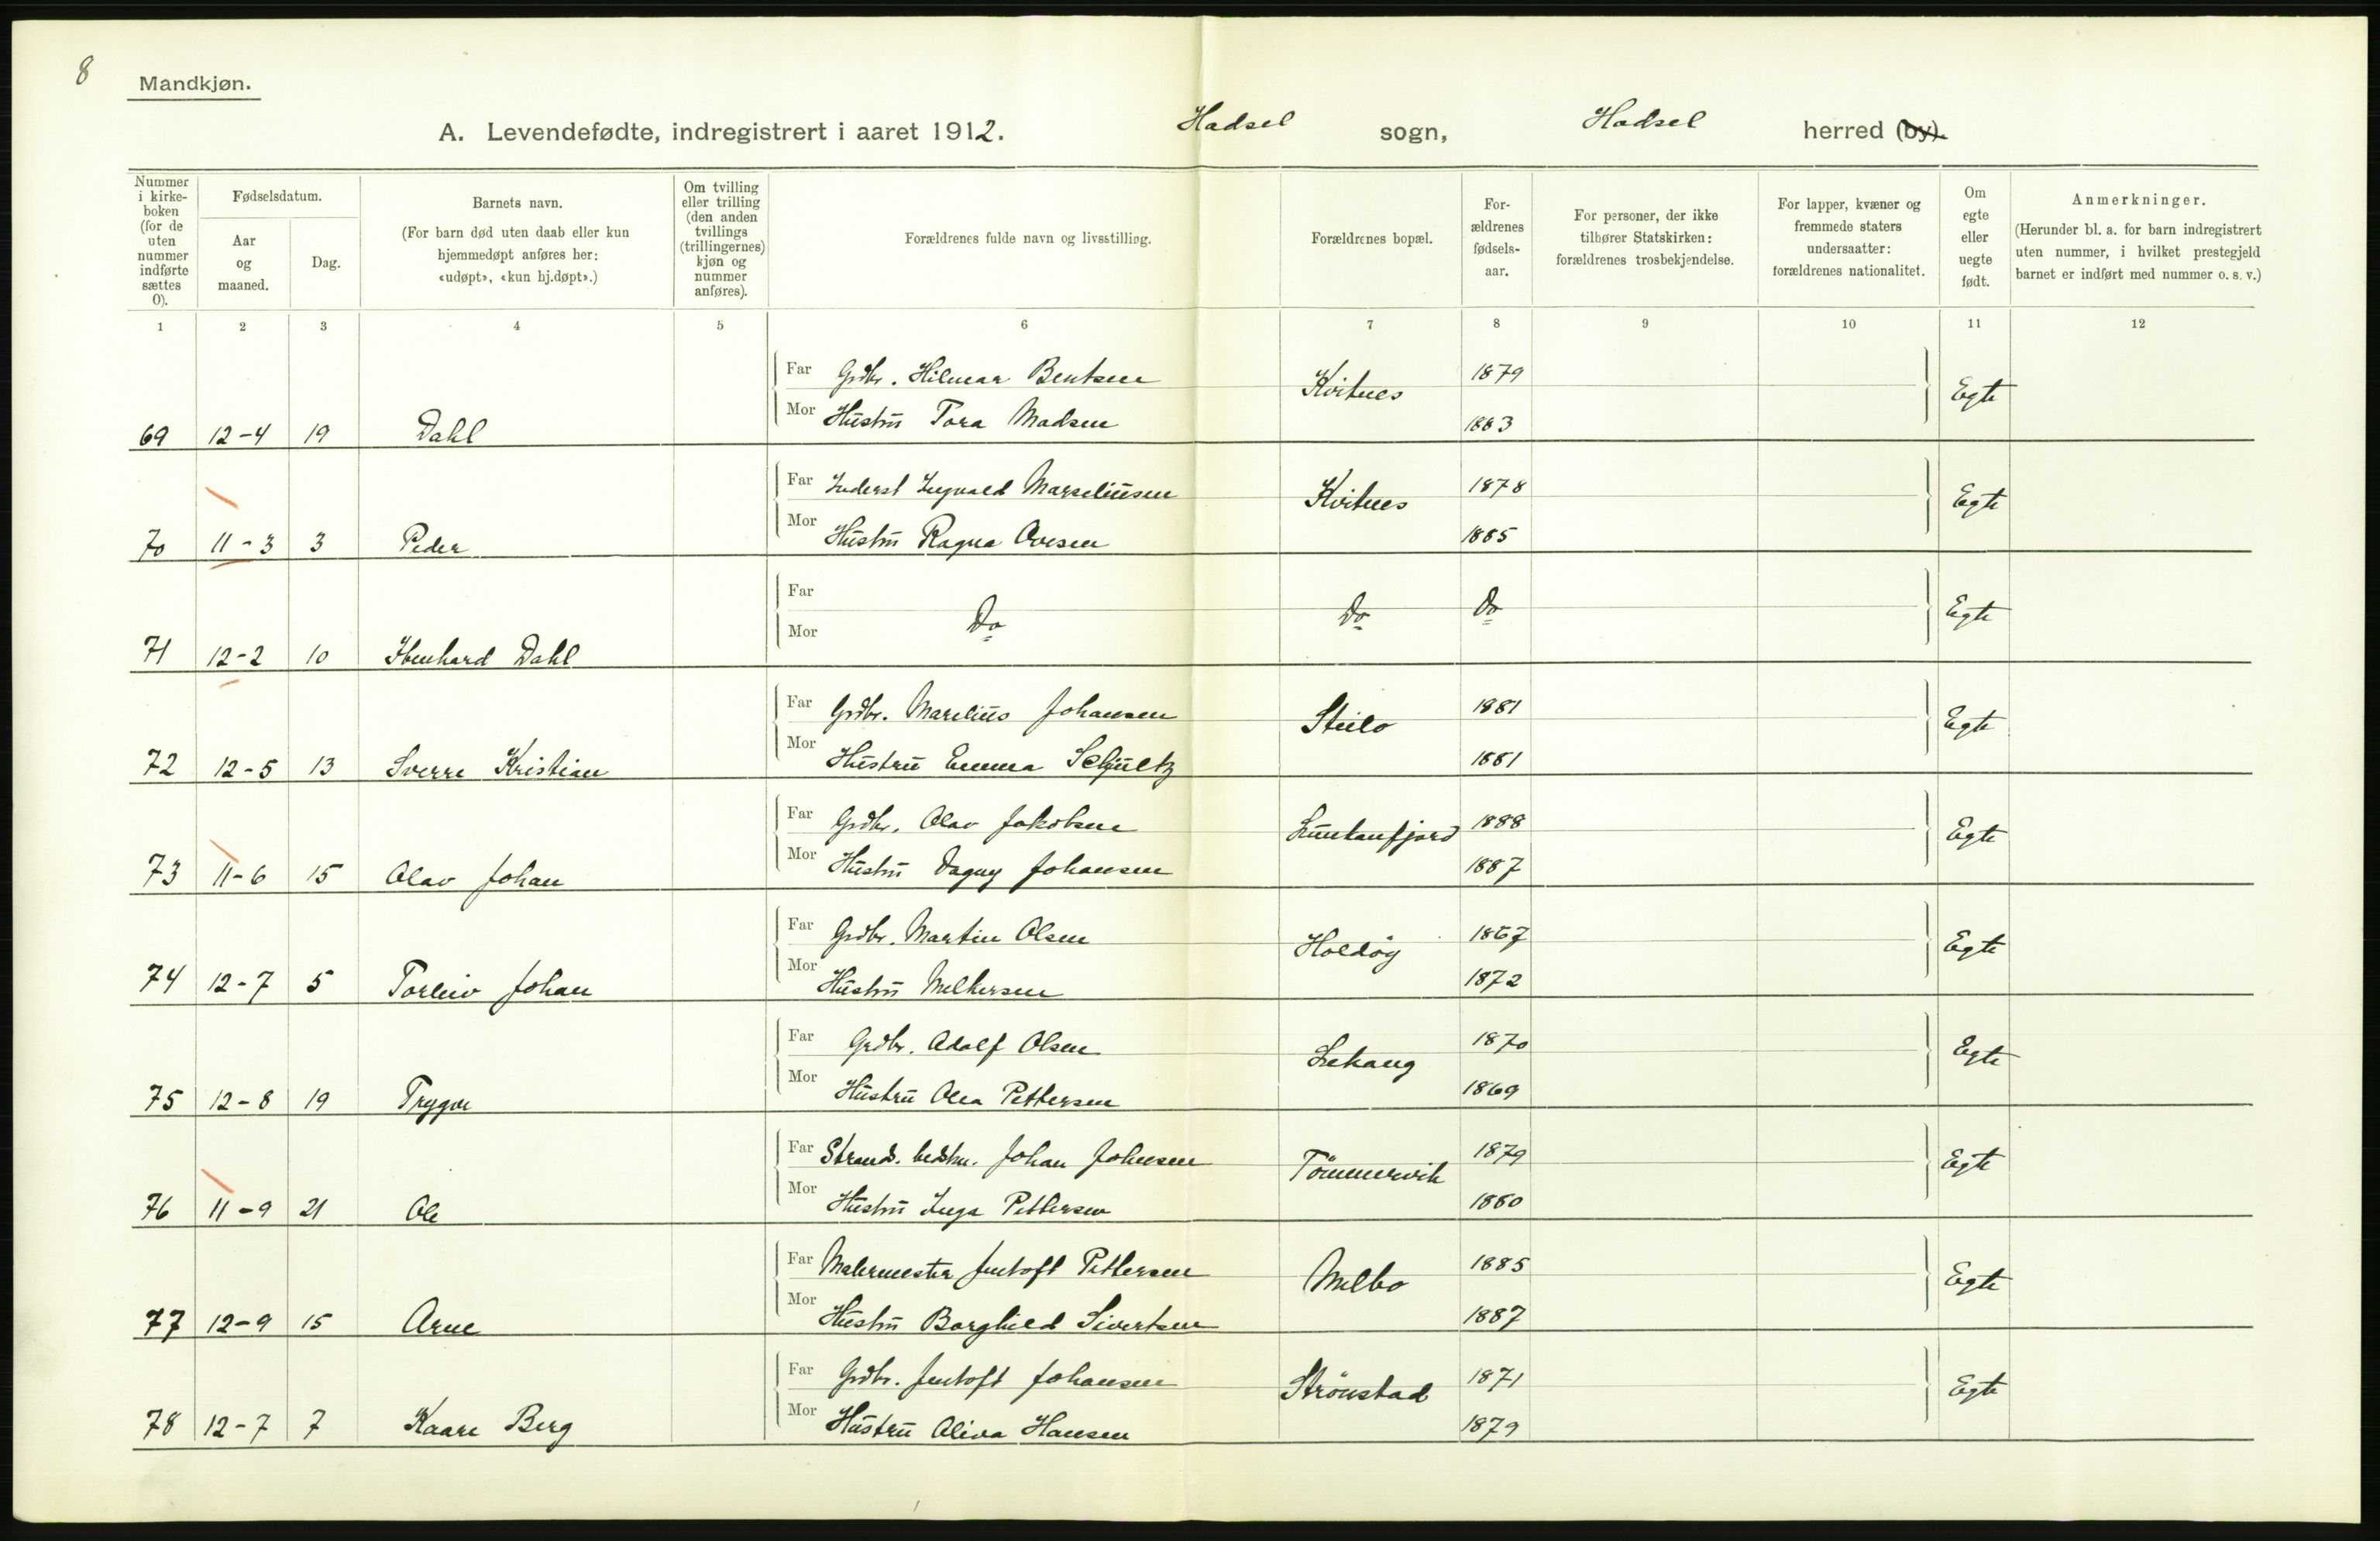 8
Mandkjøn.
A. Levendefødte, indregistrert i aaret 1912. Hadsel sogn, Hadsel herred (by).
Nummer i kirke-boken (for de uten nummer indførte sættes 0).
Fødselsdatum.
Aar og maaned.
Dag.
Barnets navn.
(For barn død uten daab eller kun hjemmedøpt anføres her: «udøpt», «kun hj.døpt».)
Om tvilling eller trilling (den anden tvillings (trillingernes) kjøn og nummer anføres).
Forældrenes fulde navn og livsstilling.
Forældrenes bopæl.
For-ældrenes fødsels-aar.
For personer, der ikke tilhører Statskirken: forældrenes trosbekjendelse.
For lapper, kvæner og fremmede staters undersaatter: forældrenes nationalitet.
Om egte eller uegte født.
Anmerkninger.
(Herunder bl. a. for barn indregistrert uten nummer, i hvilket prestegjeld barnet er indført med nummer o. s. v.)
1 2 3 4 5 6 7 8 9 10 11 12
Far Grdbr. Hilmar Bentsen Kvitnes 1879 Egte
69 12-4 19 Dahl Mor Hustru Tora Madsen 1883
Far Inderst Ingvald Marseliusen Kvitnes 1878 Egte
70 11-3 3 Peder Mor Hustru Ragna Ovesen 1885
Far Do Do Do Egte
71 12-2 10 Ibenhard Dahl Mor
Far Grdbr. Marelius Johansen Steilo 1881 Egte
72 12-5 13 Sverre Kristian Mor Hustru Emma Schjultz 1881
Far Grdbr. Olav Jakobsen 1888 Egte
73 11-6 15 Olav Johan Mor Hustru Dagny Johansen 1887
Far Grdbr. Martin Olsen Holdöy 1867 Egte
74 12-7 5 Torleiv Johan Mor Hustru Melkersen 1872
Far Grdbr. Adolf Olsen Lekang 1870 Egte
75 12-8 19 Trygve Mor Hustru Olea Pettersen 1869
Far Strands. Johan Johnsen Tömmervik 1879 Egte
76 11-9 21 Ole Mor Hustru Inga Pettersen 1880
Far Malermester Jentoft Pettersen Melbo 1885 Egte
77 12-9 15 Arne Mor Hustru Borghild Sivertsen 1887
Far Grdbr. Jentoft Johansen Strönstad 1871 Egte
78 12-7 7 Kaare Berg Mor Hustru Oliva Hansen 1879